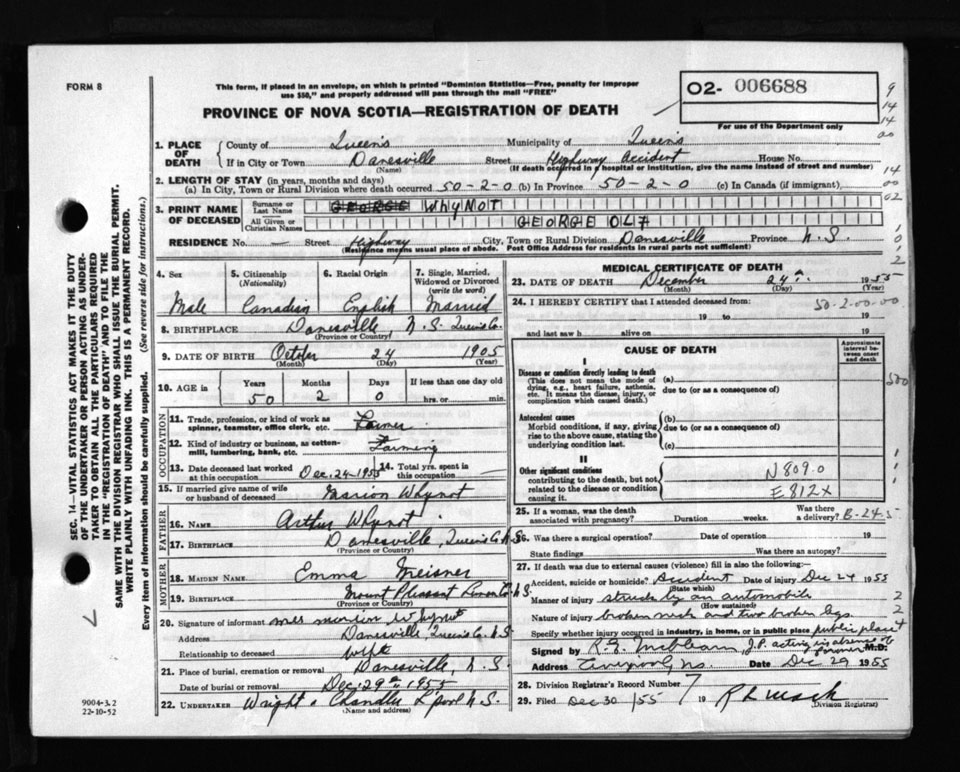 FORM 8
This form, if placed in an envelope, on which is printed "Dominion Statistics—Free, penalty for improper
use $50," and properly addressed will pass through the mail "FREE"
PROVINCE OF NOVA SCOTIA—REGISTRATION OF DEATH
O2- 006688
For use of the Department only
9
14
14
00
14
00
02
1. PLACE OF DEATH County of Queens Municipality of Queens
If in City or Town Danesville Street Highway Accident House No.
(Name) (If death occurred in a hospital or institution, give the name instead of street and number)
2. LENGTH OF STAY (in years, months and days)
(a) In City, Town or Rural Division where death occurred 50-2-0 (b) In Province 50-2-0 (c) In Canada (if immigrant)
3. PRINT NAME OF DECEASED Surname or Last Name GEORGE WHYNOT
All Given or Christian Names GEORGE OLA
RESIDENCE No. — Street Highway City, Town or Rural Division Danesville Province N.S.
(Residence means usual place of abode. Post Office Address for residents in rural parts not sufficient)
4. Sex Male
5. Citizenship (Nationality) Canadian
6. Racial Origin English
7. Single, Married, Widowed or Divorced (write the word) Married
8. BIRTHPLACE Danesville, N.S. Queens Co.
(Province or Country)
9. DATE OF BIRTH October 24 1905
(Month) (Day) (Year)
10. AGE in Years Months Days If less than one day old
50 2 0 hrs. or min.
OCCUPATION
11. Trade, profession, or kind of work as spinner, teamster, office clerk, etc. Farmer
12. Kind of industry or business, as cotton-mill, lumbering, bank, etc. Farming
13. Date deceased last worked at this occupation Dec. 24 1955 14. Total yrs. spent in this occupation
15. If married give name of wife or husband of deceased Marion Whynot
FATHER
16. NAME Arthur Whynot
17. BIRTHPLACE Danesville, Queens Co. N.S.
(Province or Country)
MOTHER
18. MAIDEN NAME Emma Meisner
19. BIRTHPLACE Mount Pleasant Lunen Co. N.S.
(Province or Country)
20. Signature of informant Mrs Marion Whynot
Address Danesville Queens Co. N.S.
Relationship to deceased Wife
21. Place of burial, cremation or removal Danesville, N.S.
Date of burial or removal Dec. 29th 1955
22. UNDERTAKER Wright & Chandler L'pool N.S.
(Name and address)
MEDICAL CERTIFICATE OF DEATH
23. DATE OF DEATH December 24th 1955
(Month) (Day) (Year)
24. I HEREBY CERTIFY that I attended deceased from
50-2-00-00
19 to 19
and last saw h alive on 19
CAUSE OF DEATH
Approximate interval between onset and death
I
Disease or condition directly leading to death (a)
(This does not mean the mode of dying, e.g., heart failure, asthenia, etc. It means the disease, injury, or complication which caused death.)
due to (or as a consequence of)
Antecedent causes (b)
Morbid conditions, if any, giving rise to the above cause, stating the underlying condition last.
due to (or as a consequence of)
(c)
II
Other significant conditions contributing to the death, but not related to the disease or condition causing it.
N809.0
E812X
25. If a woman, was the death associated with pregnancy? Duration weeks. Was there a delivery? B-24-5
26. Was there a surgical operation? Date of operation 19
State findings Was there an autopsy?
27. If death was due to external causes (violence) fill in also the following:—
Accident, suicide or homicide? Accident Date of injury Dec 24 1955
(State which)
Manner of injury struck by an automobile
(How sustained)
Nature of injury broken neck and two broken legs.
Specify whether injury occurred in industry, in home, or in public place public place
Signed by J.P. acting in absence of M.D.
Address Liverpool, N.S. Date Dec 29 1955
28. Division Registrar's Record Number 7
29. Filed Dec 30 /55 19
(Division Registrar)
SEC. 14—VITAL STATISTICS ACT MAKES IT THE DUTY
OF THE UNDERTAKER OR PERSON ACTING AS UNDER-
TAKER TO OBTAIN ALL THE PARTICULARS REQUIRED
IN THE "REGISTRATION OF DEATH" AND TO FILE THE
SAME WITH THE DIVISION REGISTRAR WHO SHALL ISSUE THE BURIAL PERMIT.
WRITE PLAINLY WITH UNFADING INK. THIS IS A PERMANENT RECORD.
Every item of information should be carefully supplied. (See reverse side for instructions.)
9004-3.2
22-10-52